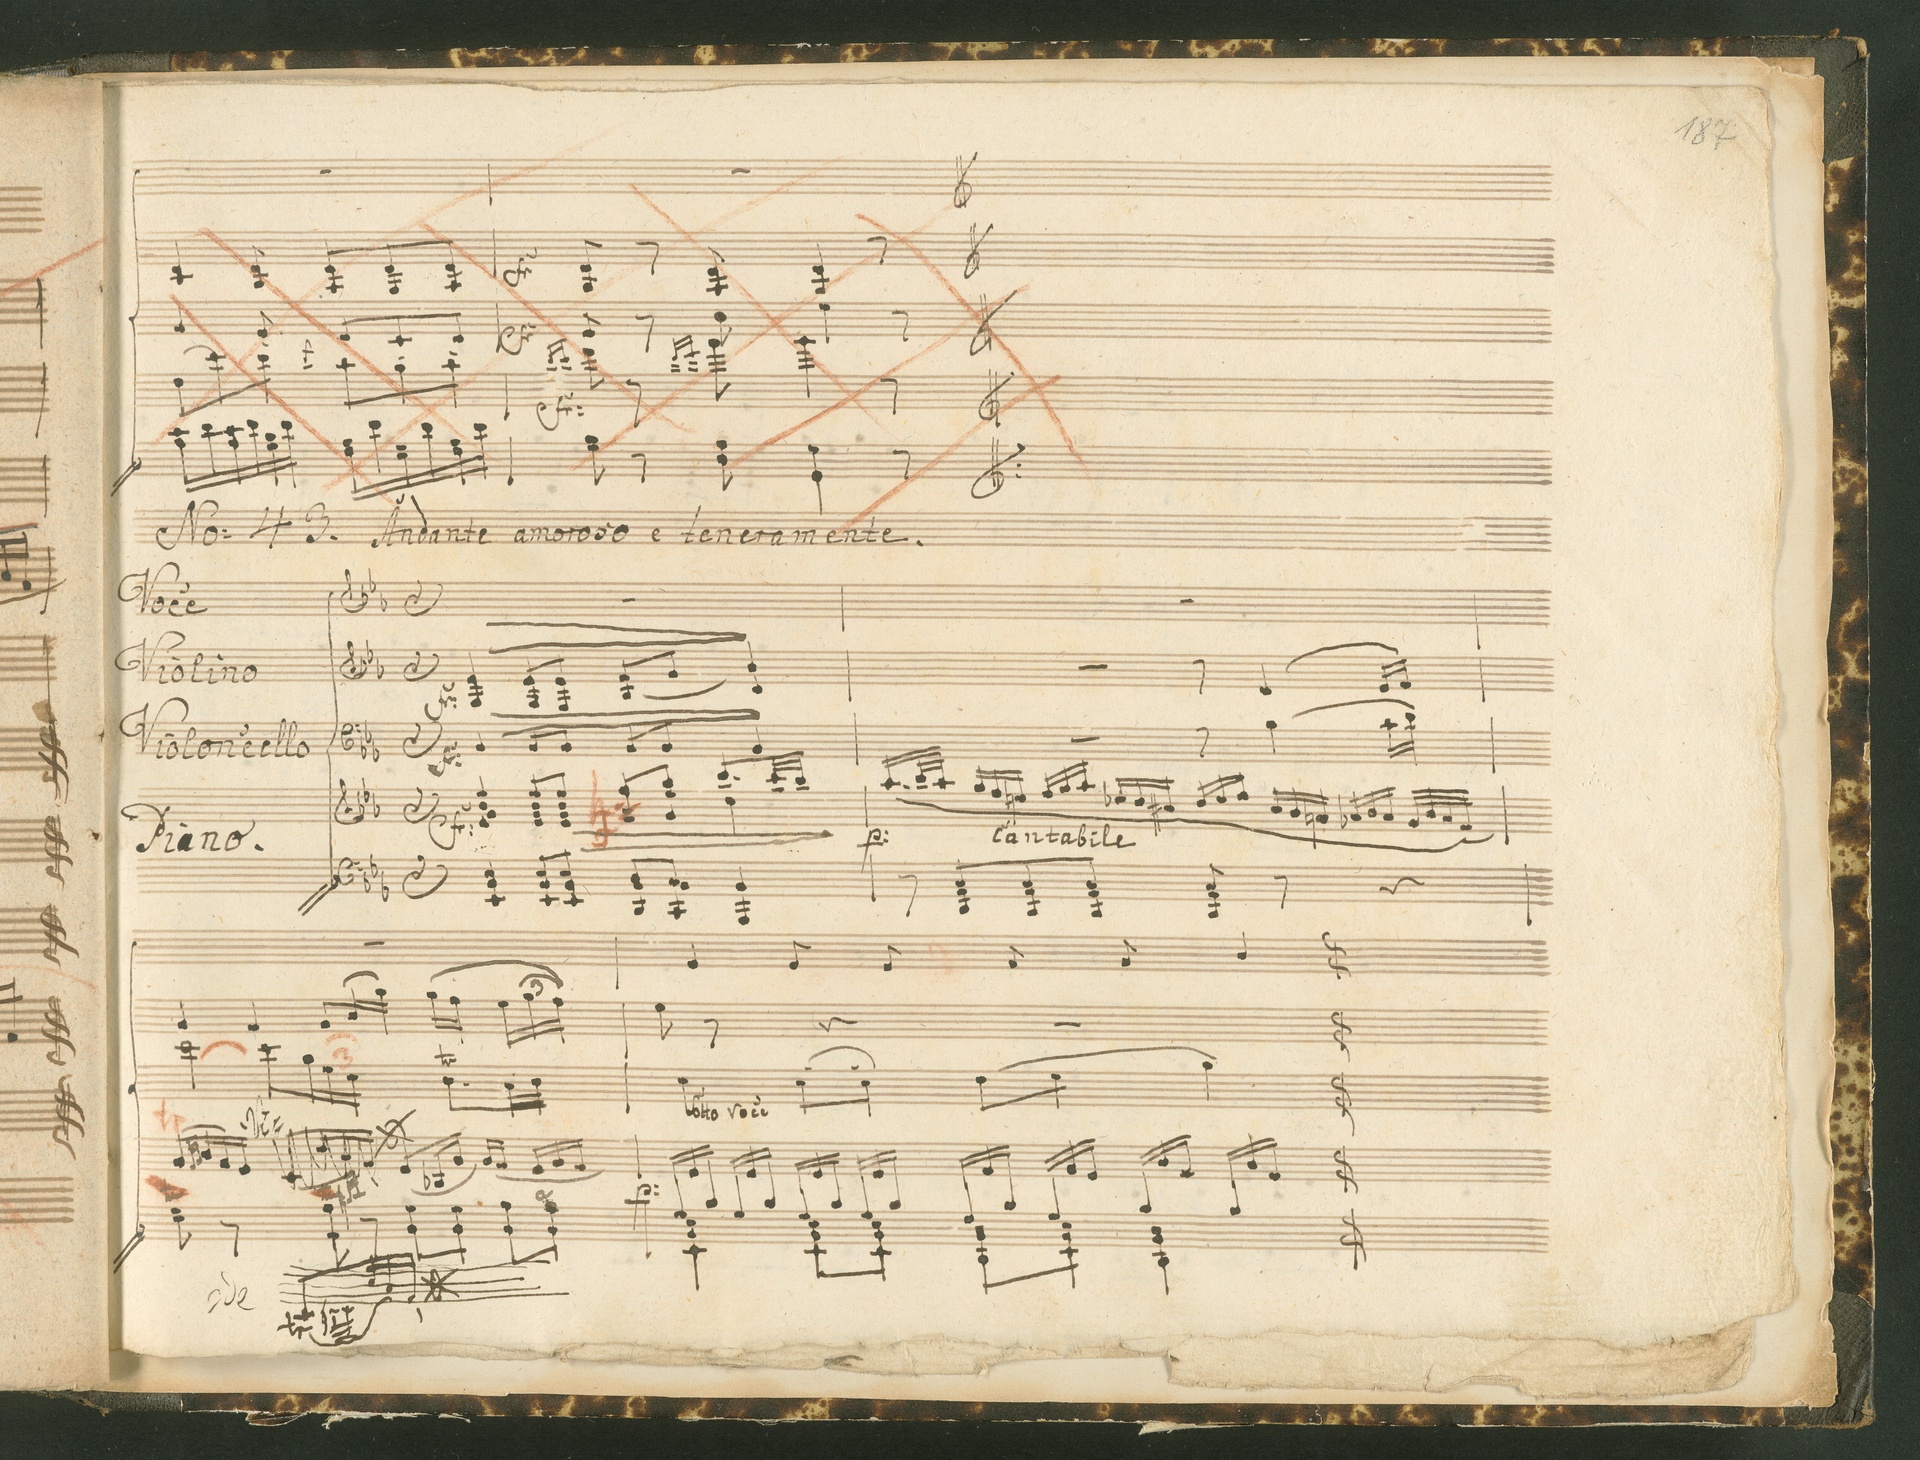 187
No: 43. Andante amoroso e teneramente.
Voce
Violino
Violoncello
Piano.
p: cantabile
sotto voce
p: